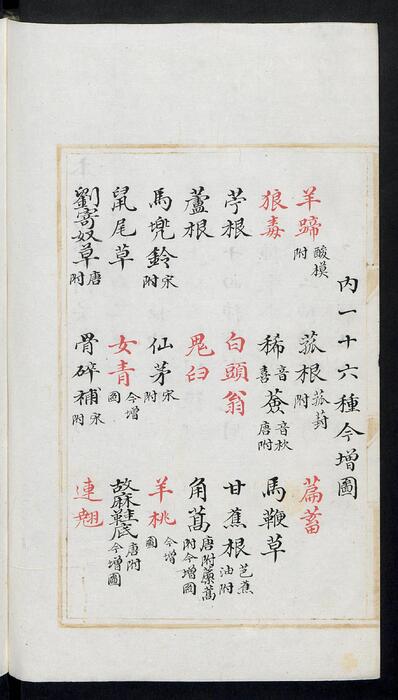 內一十六種今增圖
羊蹄 酸模附 菰根 菰葑附 萹蓄
狼毒 豨音喜薟音枚唐附 馬鞭草
苧根 白頭翁 甘蕉根 芭蕉油附
蘆根 鬼臼 角蒿 唐附蘪蒿附今增圖
馬兜鈴 宋附 仙茅 宋附 羊桃 今增圖
鼠尾草 女青 今增圖 故麻鞋底 唐附今增圖
劉寄奴草 唐附 骨碎補 宋附 連翹